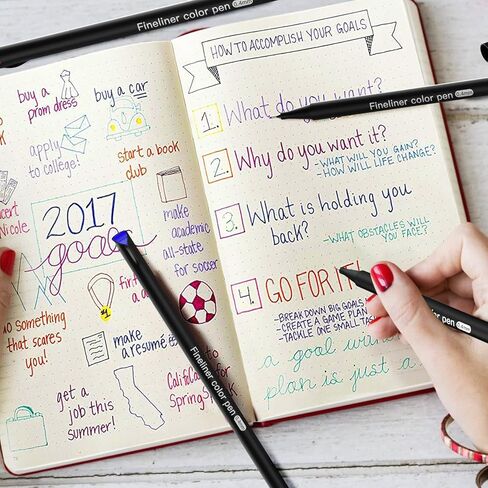 Fineliner color pen 0.4mm
HOW TO ACCOMPLISH YOUR GOALS
Fineliner color pen 0.4mm
1. What do you want?
2. Why do you want it?
- WHAT WILL YOU GAIN?
- HOW WILL LIFE CHANGE?
3. What is holding you
back?
- WHAT OBSTACLES WILL
YOU FACE?
4. GO FOR IT!
- BREAK DOWN BIG GOALS
- CREATE A GAME PLAN
- TACKLE ONE SMALL
a goal
plan is just a
buy a
prom dress
buy a car
apply
to college!
start a book
club
Nicole
2017
goals
make
academic
all-state
for soccer
something
that scares
you!
make
a resumé
get a
job this
summer!
Fineliner color pen
0.4mm